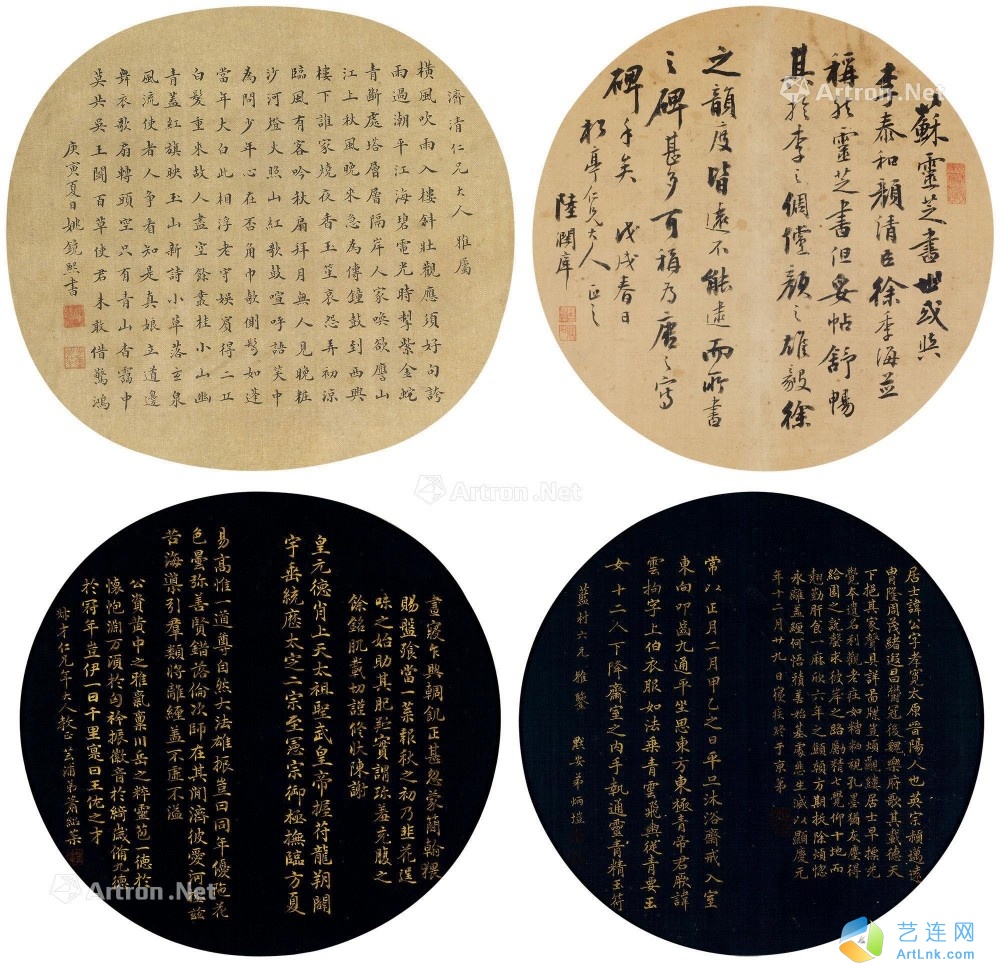 濟清仁兄大人 雅屬
橫風吹雨入樓斜壯觀應須好句誇
雨過潮平江海碧電光時掣紫金蛇
青斷處塔層層隔岸人家喚欲譍山
江上秋風晚來急為傳鐘鼓到西興
樓下誰家燒夜香玉笙哀怨弄初涼
臨風有客吟秋扇拜月無人見晚粧
沙河燈火照山紅歌鼓喧呼語笑中
為問少年心在否角巾欹側鬢如蓬
當年大白此相浮老守娛賓得二丘
白髮重來故人盡空餘叢桂小山幽
青蓋紅旗映玉山新詩小草落玄泉
風流使者人爭看知是真娘立道邊
舞衣歌扇轉頭空只有青山杳靄中
莫共吳王鬪百草使君未敢借驚鴻
庚寅夏日姚鏡熙書
蘇靈芝書世或與
李泰和顏清臣徐季海並
稱然靈芝書但妥帖舒暢
其於李之倜儻顏之雄毅徐
之韻度皆遠不能逮而所書
之碑甚多可稱為唐之寫
碑手矣 戊戌春日
松亭仁兄大人正之
陸潤庠
晝寢乍興輖飢正甚忽蒙簡翰猥
賜盤飧當一葉報秋之初乃韭花逞
味之始助其肥羜實謂珍羞充腹之
餘銘肌載切謹修狀陳謝
皇元德肖上天太祖聖武皇帝握符龍朔闢
宇垂統應太宗二宗至憲宗御極撫臨方夏
易高惟一道尊自然大法雄振豈曰同年優曇花
色曇弥善賢錯落倫次師在其間濟彼愛河於茲
苦海導引羣類將離纏蓋不虛不溢
公資黃中之雅氣稟川岳之粹靈苞一德於
懷抱澗万頃於匈衿振徽音於綺歲脩九德
於冠年豈伊一日千里寔曰王佐之才
仁兄年大人教正 芸浦弟蕭
居士諱公字孝寬太原晉陽人也英宗穎邁遠
冑隆周茂緒遐昌簪冠後魏 府歌其載德天
下挹其家聲具詳圖牒豈煩觀縷居士早標先
覺本遺名利觀老莊如糟粕視孔墨猶灰塵得
給園之說 求彼岸之路勵精七覺仰十地而
翹勤肝食一麻欣六年之顦顇方期拔除煩惱
永離蓋纏何悟積善始基處悲生滅以顯慶元
年十二月廿九日寢疾終于京弟
常以正月二月甲乙之日平旦沐浴齋戒入室
東向叩齒九通平坐思東方東極青帝君厥諱
雲拘字上伯衣服如法乘青雲飛輿從青要玉
女十二人下降齋室之內手執通靈青精玉符
藍村六兄 雅鑒 默安弟炳塏
Artron.Net
艺连网
ArtLnk.com